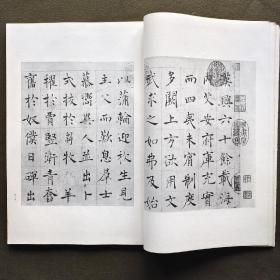 漢興六十餘載海
內艾安府庫充實
而四夷未賓制度
多闕上方欲用文
武求之如弗及始
以蒲輪迎枚生見
主父而歎息群士
慕嚮異人並出卜
式拔於芻牧羊
擢於賈豎衛青
奮於奴僕日磾出